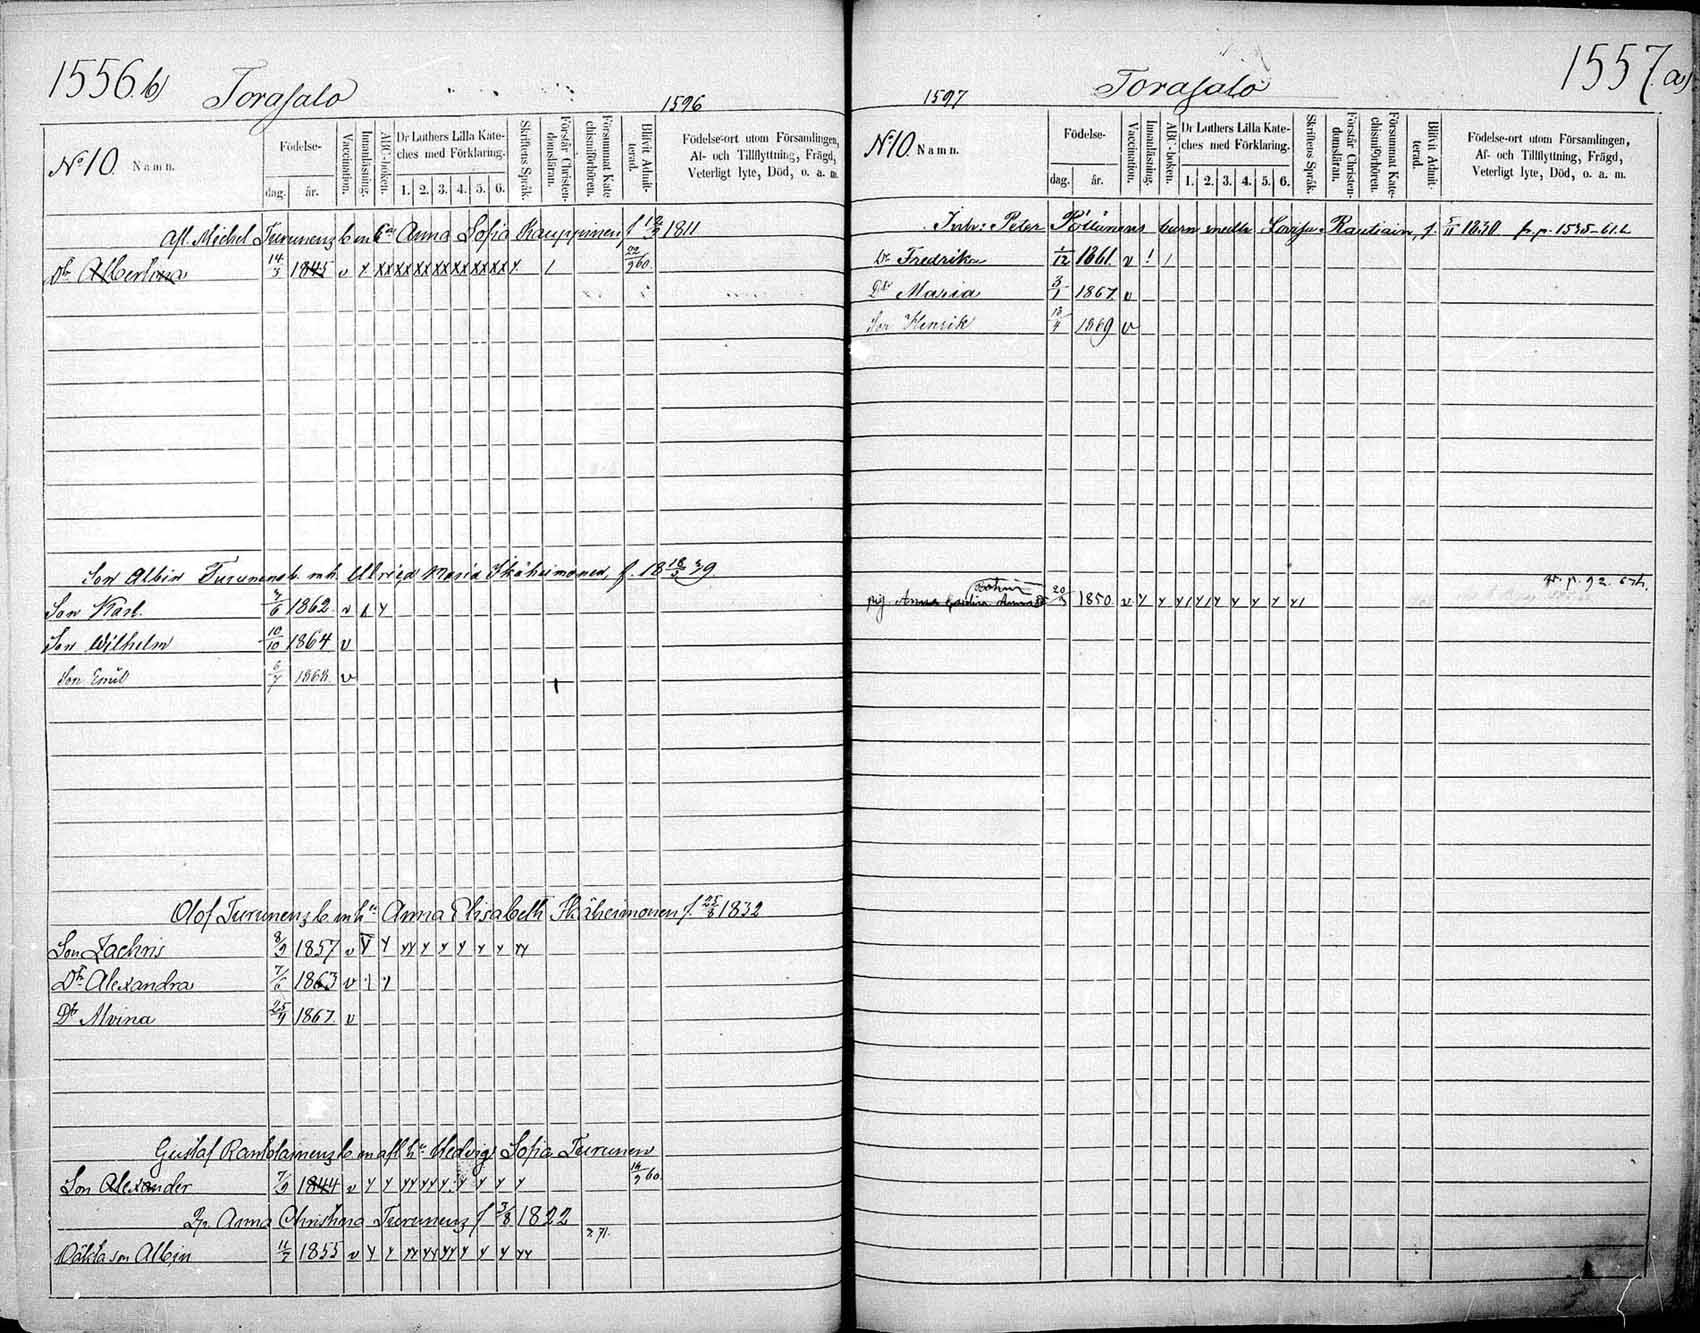 1556.b)
Torasalo
1596
No 10 Namn.
Födelse-
dag.
år.
Vaccination.
Innanläsning.
ABC-boken.
Dr Luthers Lilla Kate-
ches med Förklaring.
1. 2. 3. 4. 5. 6.
Skriftens Språk.
Förstår Christen-
domsläran.
Försummat Kate-
chismiförhören.
Blifvit Admit-
terad.
Födelse-ort utom Församlingen,
Af- och Tillflyttning, Frägd,
Veterligt lyte, Död, o. a. m.
Afl. Michel Turunens b m Anna Sofia Kauppinen f 1811
Dr Albertina 14/3 1845 v 22/9 60.
Son Albin Turunens b. m h. Ulrica Maria Ikäheimonen, f. 18 18/3 39.
Son Karl. 1862. v
Son Wilhelm 10/10 1864 v
Son Emil 6/7 1868 v
Olof Turunens b m hu Anna Elisabeth Ikäheimonen f. 25/8 1832
Son Zachris 8/9 1857 v
Dr Alexandra 7/6 1863 v
Dr Alvina 25/9 1867. v
Gustaf Rantalainens b m afl hu Hedvig Sofia Turunen
Son Alexander 7/9 1844 v 14/9 60
Anna Christina Turunens f 3/8 1822
Oäkta son Albin 11/7 1855 v
1557.a)
Torasalo
1597
No 10. Namn.
Födelse-
dag.
år.
Vaccination.
Innanläsning.
ABC-boken.
Dr Luthers Lilla Kate-
ches med Förklaring.
1. 2. 3. 4. 5. 6.
Skriftens Språk.
Förstår Christen-
domsläran.
Försummat Kate-
chismiförhören.
Blifvit Admit-
terad.
Födelse-ort utom Församlingen,
Af- och Tillflyttning, Frägd,
Veterligt lyte, Död, o. a. m.
Inh: Peter Pöllänens barn medh Lovisa Rautiain, f. 5/11 1830 fr. p. 1535-61.
Dr Fredrika 1/12 1861. v
Dr Maria 3/1 1867 v
Son Henrik 13/4 1869 v
pig. Anna 20/3 1850. v